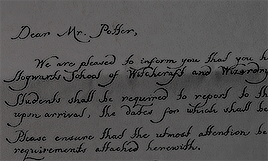 Dear Mr. Potter,
We are pleased to inform you that you h
Hogwarts School of Witchcraft and Wizardry
Students shall be required to report to th
upon arrival, the dates for which shall be
Please ensure that the utmost attention be
requirements attached herewith.